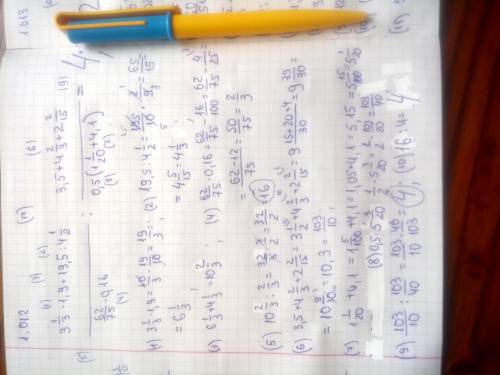 1.013
1.012
(1) (3) (2) (11) (6)
3 1/3 · 1,9 + 19,5 : 4 1/2 3,5 + 4 2/3 + 2 2/15 (9)
(5) ———————— : ———————— = 4
62/75 − 0,16 0,5 (1 1/20 + 4,1)
(4) (8) (7)
(1) 3 1/3 · 1,9 = 10/3 · 19/10 = 19/3 = 6 1/3 , (2) 19,5 : 4 1/2 = 195/10 · 2/9 = 65/15 =
= 4 5/15 = 4 1/3
(3) 6 1/3 + 4 1/3 = 10 2/3 , (4) 62/75 − 0,16 = 62/75 − 16/100 = 62/75 − 4/25 =
= (62−12)/75 = 50/75 = 2/3
(5) 10 2/3 : 2/3 = 32/3 · 3/2 = 32/2 = 16
(6) 3,5 + 4 2/3 + 2 2/15 = 3 1/2 + 4 2/3 + 2 2/15 = 9 (15+20+4)/30 = 9 39/30
= 10 9/30 = 10,3 = 103/10 ,
(7) 1 1/20 + 4,1 = 1 5/100 + 4,1 = 1,05 + 4,1 = 5,15 = 5 15/100 = 5 3/20
(8) 0,5 · 5 3/20 = 1/2 · 103/20 = 103/40
(9) 103/10 : 103/40 = 103/10 · 40/103 = 4 . (10) 16 : 4 = 4